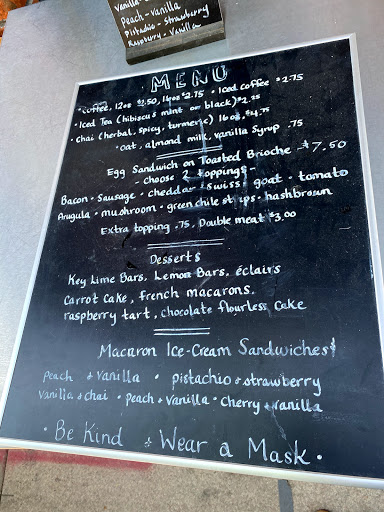 vanilla
Peach - vanilla
Pistachio - Strawberry
Raspberry - Vanilla
MENU
• Coffee, 12oz $2.50, 16oz $2.75 • Iced coffee $2.75
• Iced Tea (hibiscus mint or black) $2.75
• Chai (herbal, spicy, turmeric) 16oz $4.75
• oat, almond milk, vanilla syrup .75
Egg Sandwich on Toasted Brioche - $7.50
- choose 2 toppings -
Bacon • Sausage • cheddar • swiss • goat • tomato
Arugula • mushroom • green chile strips • hashbrown
Extra topping .75, Double meat $3.00
Desserts
Key Lime Bars, Lemon Bars, éclairs
Carrot Cake, French macarons,
raspberry tart, chocolate flourless cake
Macaron Ice-Cream Sandwiches
peach & vanilla • pistachio & strawberry
Vanilla & chai • peach & vanilla • cherry & vanilla
• Be Kind & Wear a Mask •